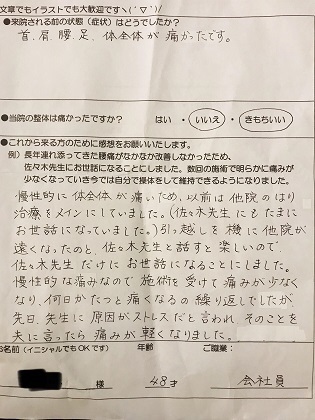 文章でもイラストでも大歓迎です＼(´▽`)/
●来院される前の状態（症状）はどうでしたか？
首、肩、腰、足、体全体が痛かったです。
●当院の整体は痛かったですか？　はい ・ いいえ ・ きもちいい
●これから来る方のために感想をお願いいたします。
例）長年連れ添ってきた腰痛がなかなか改善しなかったため、
佐々木先生にお世話になることにしました。数回の施術で明らかに痛みが
少なくなっていき今では自分で操体をして維持できるようになりました。
慢性的に体全体が痛いため、以前は他院のはり
治療をメインにしていました。(佐々木先生にもたまに
お世話になっていました。)引っ越しを機に他院が
遠くなったのと、佐々木先生と話すと楽しいので
佐々木先生だけにお世話になることにしました。
慢性的な痛みなので施術を受けて痛みが少なく
なり、何日かたつと痛くなるの繰り返しでしたが
先日、先生に原因がストレスだと言われ、そのことを
夫に言ったら痛みが軽くなりました。
お名前（イニシャルでもOKです！）　年齢　ご職業：
様　48才　会社員